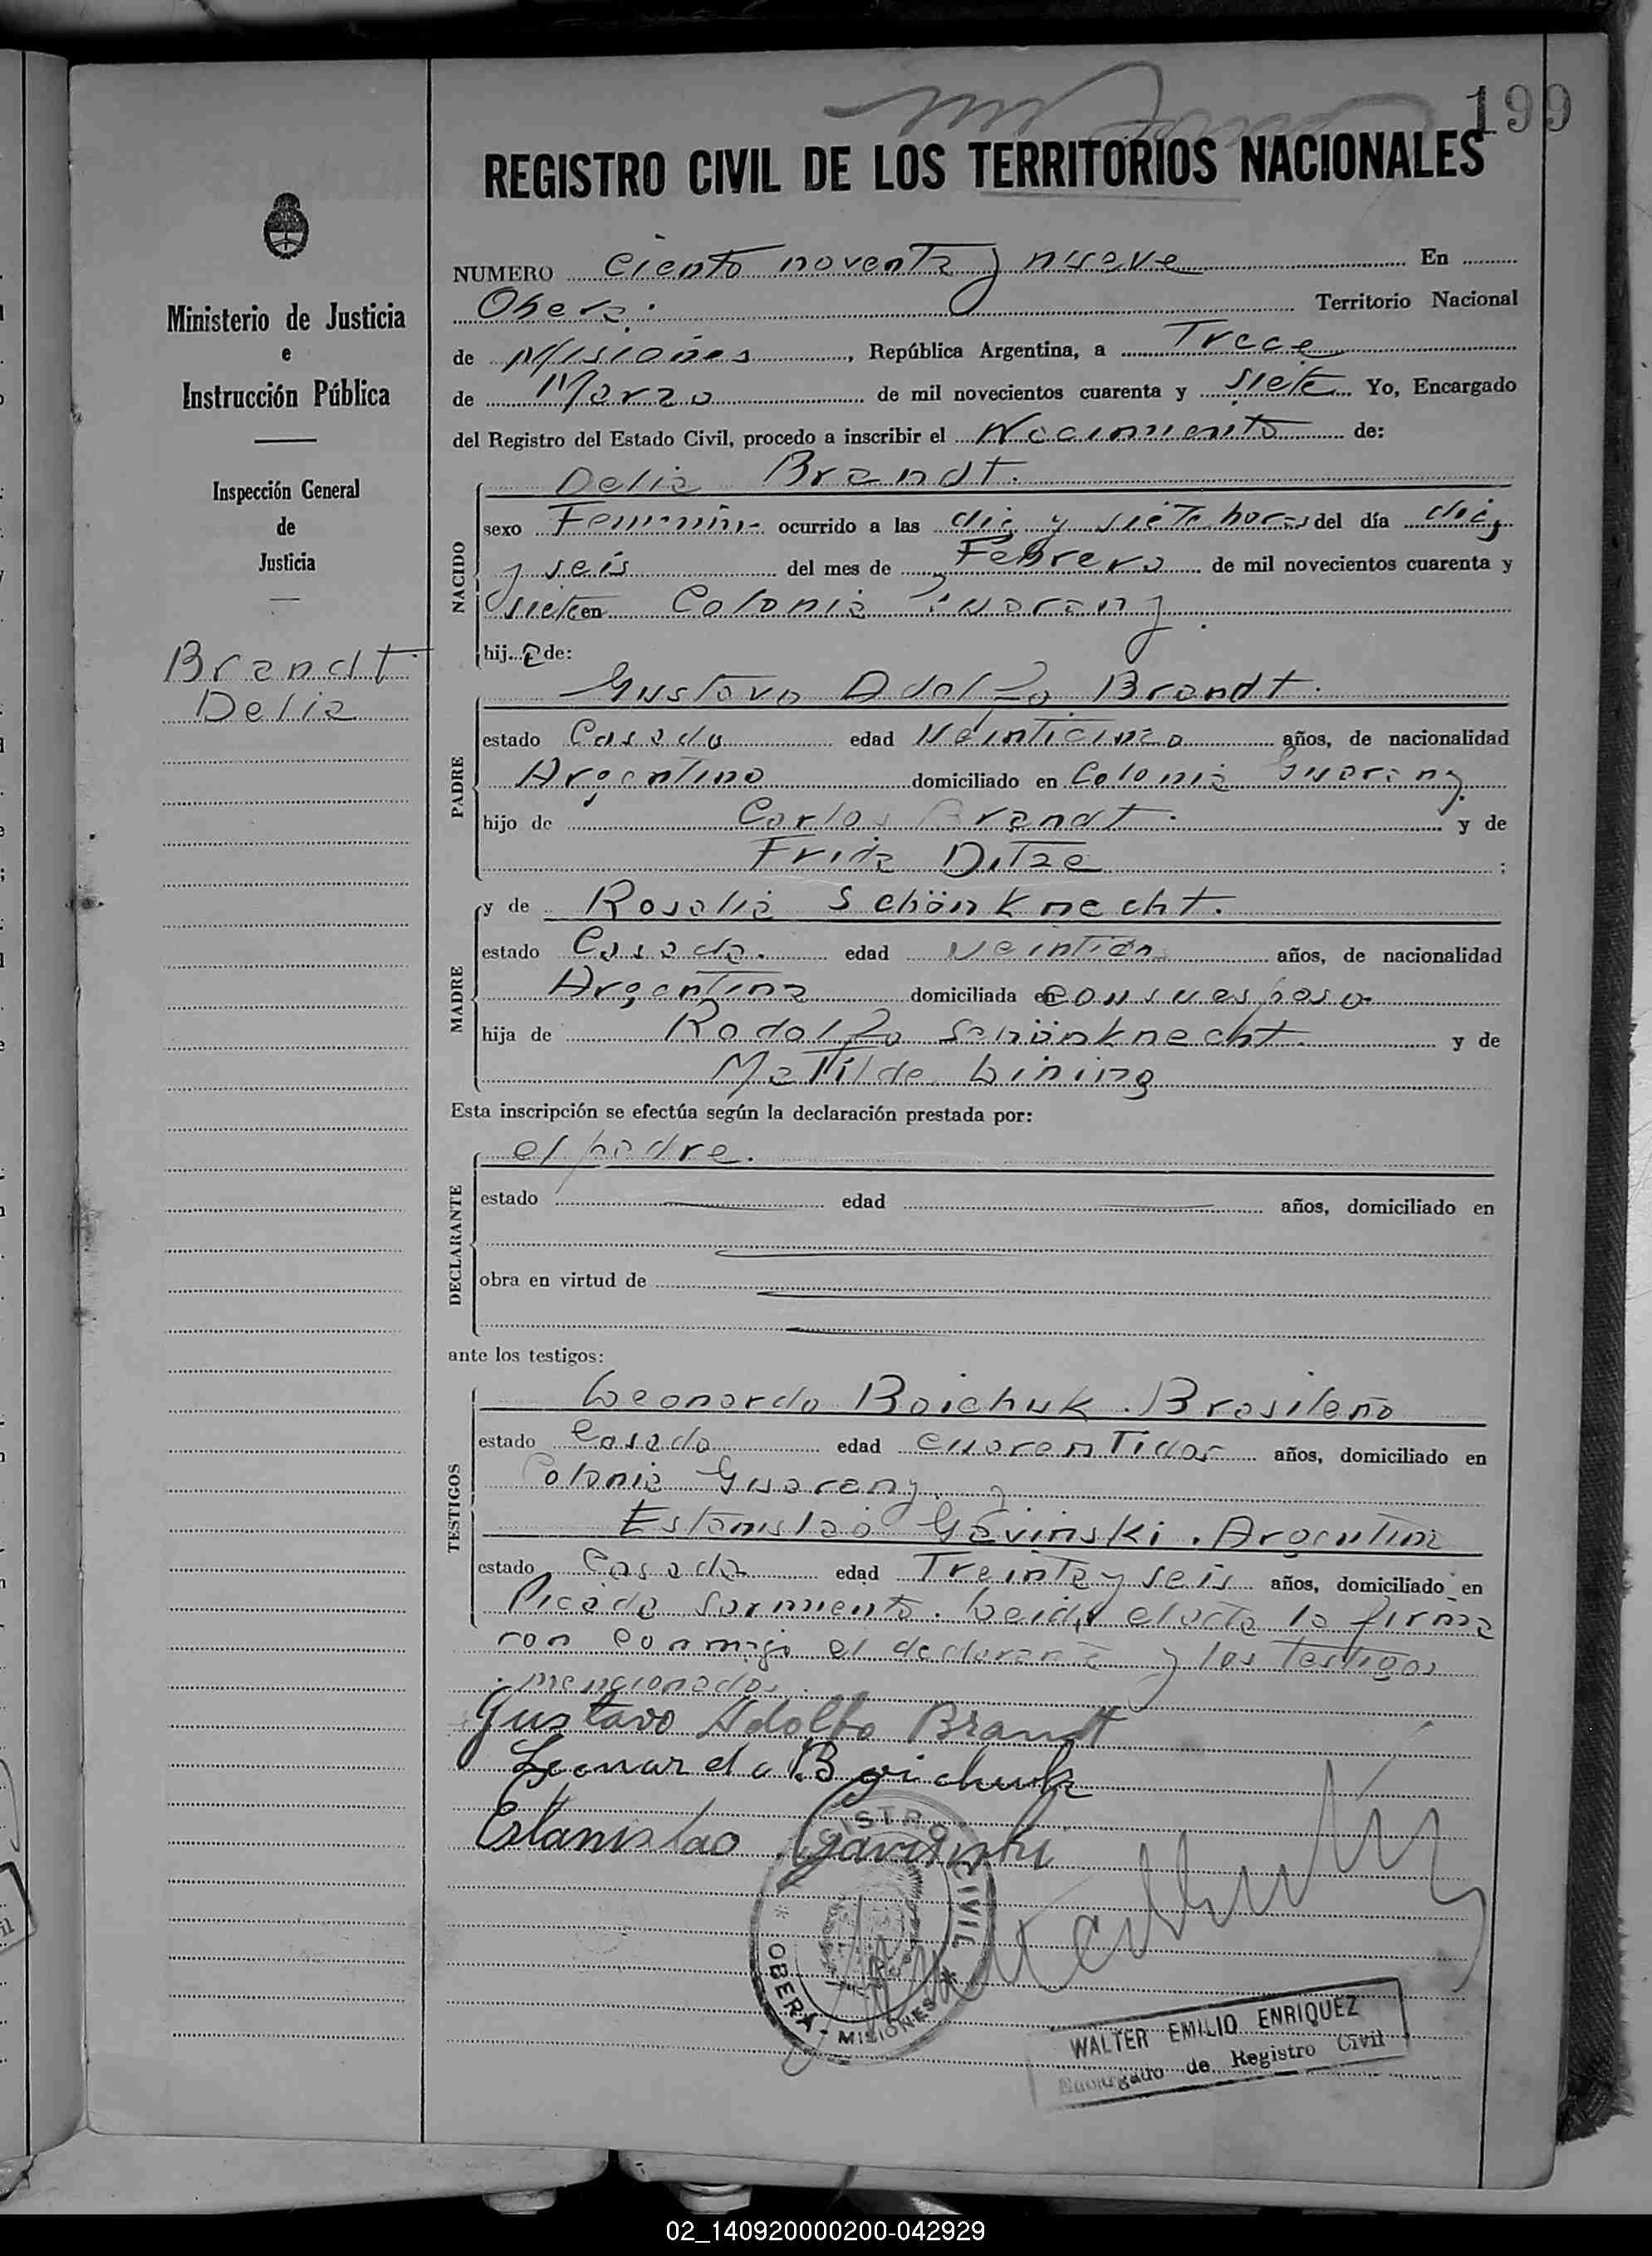 199
REGISTRO CIVIL DE LOS TERRITORIOS NACIONALES
Ministerio de Justicia
e
Instrucción Pública
Inspección General
de
Justicia
Brandt
Delia
NUMERO Ciento noventa y nueve En
Oberá. Territorio Nacional
de Misiones, República Argentina, a Trece
de Marzo de mil novecientos cuarenta y siete Yo, Encargado
del Registro del Estado Civil, procedo a inscribir el Nacimiento de:
NACIDO
Delia Brandt.
sexo Femenino ocurrido a las diez y siete horas del día diez
y seis del mes de Febrero de mil novecientos cuarenta y
siete en Colonia Guarany.
hija de:
PADRE
Gustavo Adolfo Brandt.
estado Casado edad Veinticinco años, de nacionalidad
Argentino domiciliado en Colonia Guarany.
hijo de Carlos Brandt. y de
Frida Ditze ;
MADRE
y de Rosalia Schönknecht.
estado Casada. edad años, de nacionalidad
Argentina domiciliada en con su esposo
hija de Rodolfo Schönknecht. y de
Matilde Lining
Esta inscripción se efectúa según la declaración prestada por:
DECLARANTE
el padre.
estado edad años, domiciliado en
obra en virtud de
ante los testigos:
TESTIGOS
Leonardo Boichuk. Brasileño
estado Casado edad cuarentidos años, domiciliado en
Colonia Guarany. y
Estanislao Gavinski. Argentino
estado Casado edad Treinta y seis años, domiciliado en
Picada Sarmiento. Leida el acta la firma
ron conmigo el declarante y los testigos
mencionados.
Gustavo Adolfo Brandt
Leonardo Boichuk
Estanislao
REGISTRO CIVIL
OBERÁ - MISIONES
WALTER EMILIO ENRIQUEZ
Encargado de Registro Civil
02_140920000200-042929